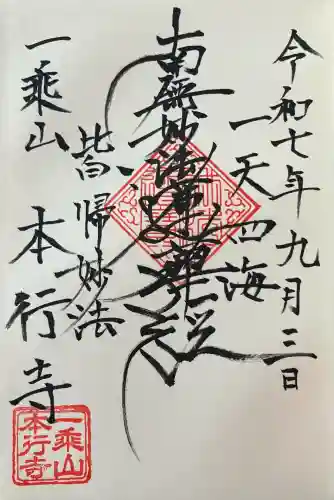 令和七年九月三日
一天四海
南無妙法蓮華経
皆帰妙法
一乗山 本行寺
一乗山
本行寺